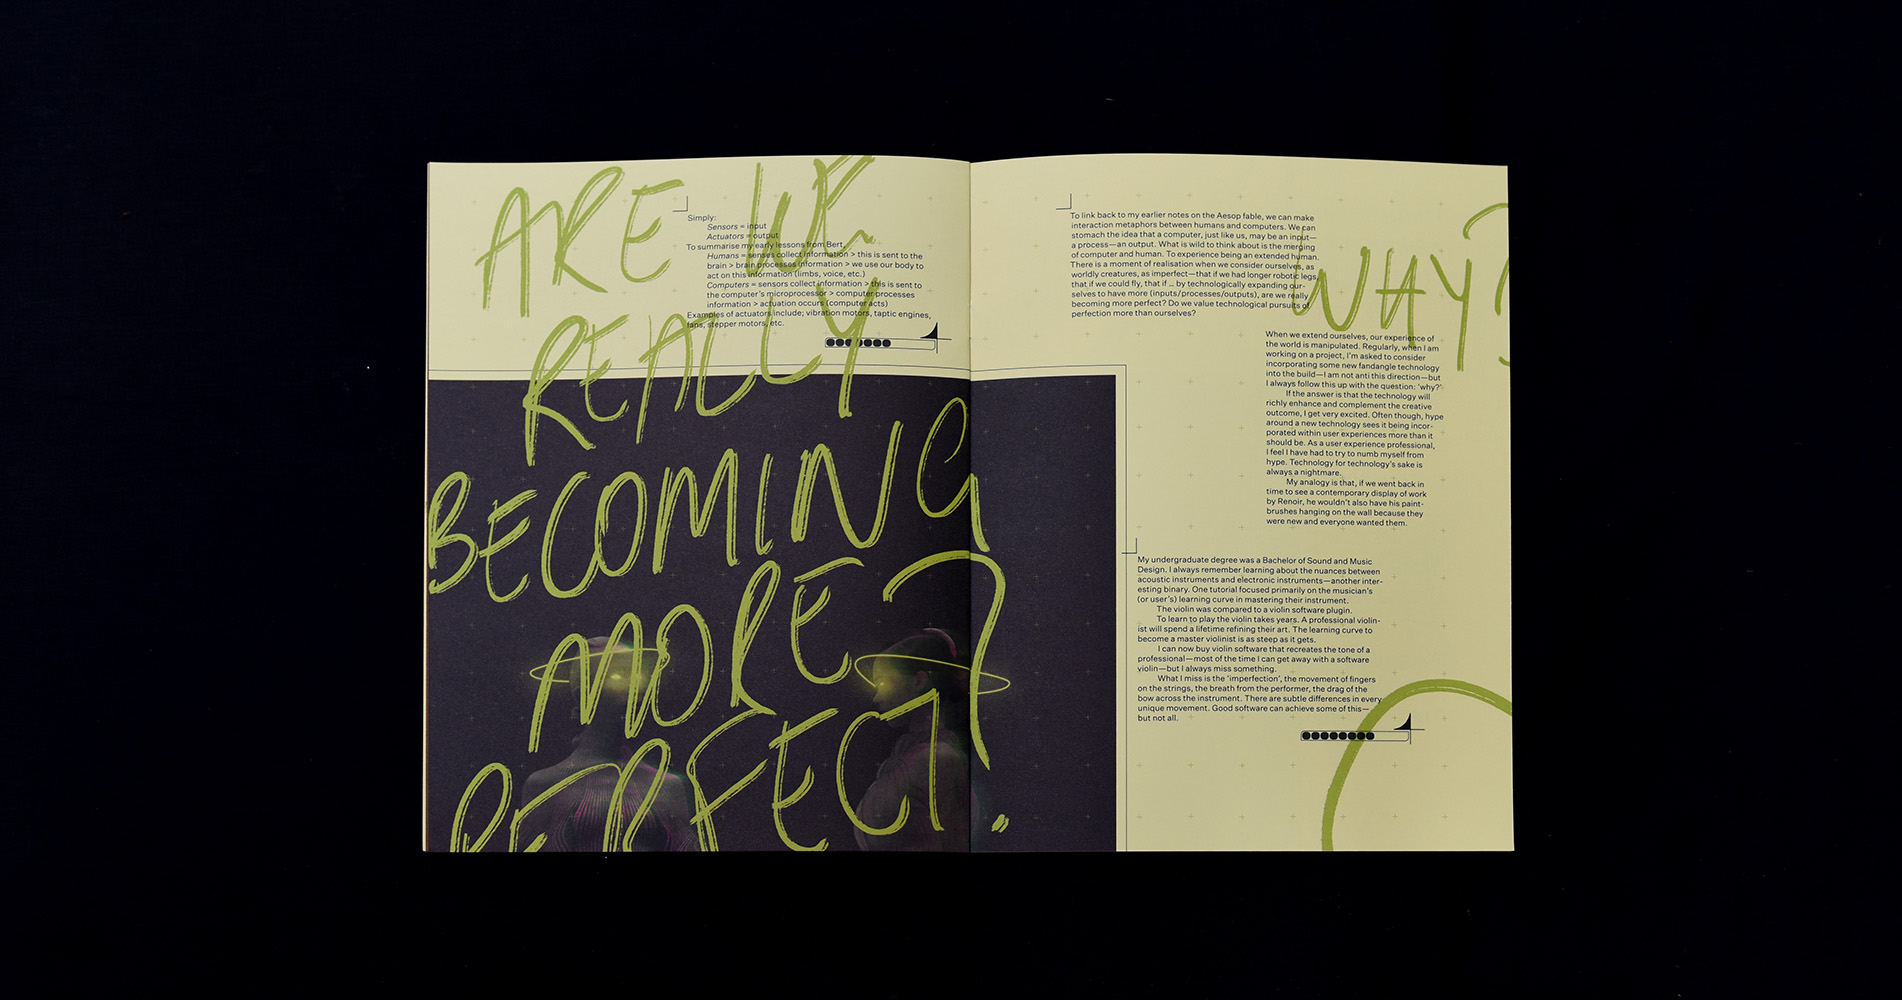 ARE WE
REALLY
BECOMING
MORE
PERFECT?
Simply:
Sensors = input
Actuators = output
To summarise my early lessons from Bert,
Humans = sensors collect information > this is sent to the
brain > brain processes information > we use our body to
act on this information (limbs, voice, etc.)
Computers = sensors collect information > this is sent to
the computer's microprocessor > computer processes
information > actuation occurs (computer acts)
Examples of actuators include; vibration motors, taptic engines,
fans, stepper motors, etc.
To link back to my earlier notes on the Aesop fable, we can make
interaction metaphors between humans and computers. We can
stomach the idea that a computer, just like us, may be an input—
a process—an output. What is wild to think about is the merging
of computer and human. To experience being an extended human.
There is a moment of realisation when we consider ourselves, as
worldly creatures, as imperfect—that if we had longer robotic legs,
that if we could fly, that if … by technologically expanding our-
selves to have more (inputs/processes/outputs), are we really
becoming more perfect? Do we value technological pursuits of
perfection more than ourselves?
WHY?
When we extend ourselves, our experience of
the world is manipulated. Regularly, when I am
working on a project, I'm asked to consider
incorporating some new fandangle technology
into the build—I am not anti this direction—but
I always follow this up with the question: 'why?'
If the answer is that the technology will
richly enhance and complement the creative
outcome, I get very excited. Often though, hype
around a new technology sees it being incor-
porated within user experiences more than it
should be. As a user experience professional,
I feel I have had to try to numb myself from
hype. Technology for technology's sake is
always a nightmare.
My analogy is that, if we went back in
time to see a contemporary display of work
by Renoir, he wouldn't also have his paint-
brushes hanging on the wall because they
were new and everyone wanted them.
My undergraduate degree was a Bachelor of Sound and Music
Design. I always remember learning about the nuances between
acoustic instruments and electronic instruments—another inter-
esting binary. One tutorial focused primarily on the musician's
(or user's) learning curve in mastering their instrument.
The violin was compared to a violin software plugin.
To learn to play the violin takes years. A professional violin-
ist will spend a lifetime refining their art. The learning curve to
become a master violinist is as steep as it gets.
I can now buy violin software that recreates the tone of a
professional—most of the time I can get away with a software
violin—but I always miss something.
What I miss is the 'imperfection', the movement of fingers
on the strings, the breath from the performer, the drag of the
bow across the instrument. There are subtle differences in every
unique movement. Good software can achieve some of this—
but not all.